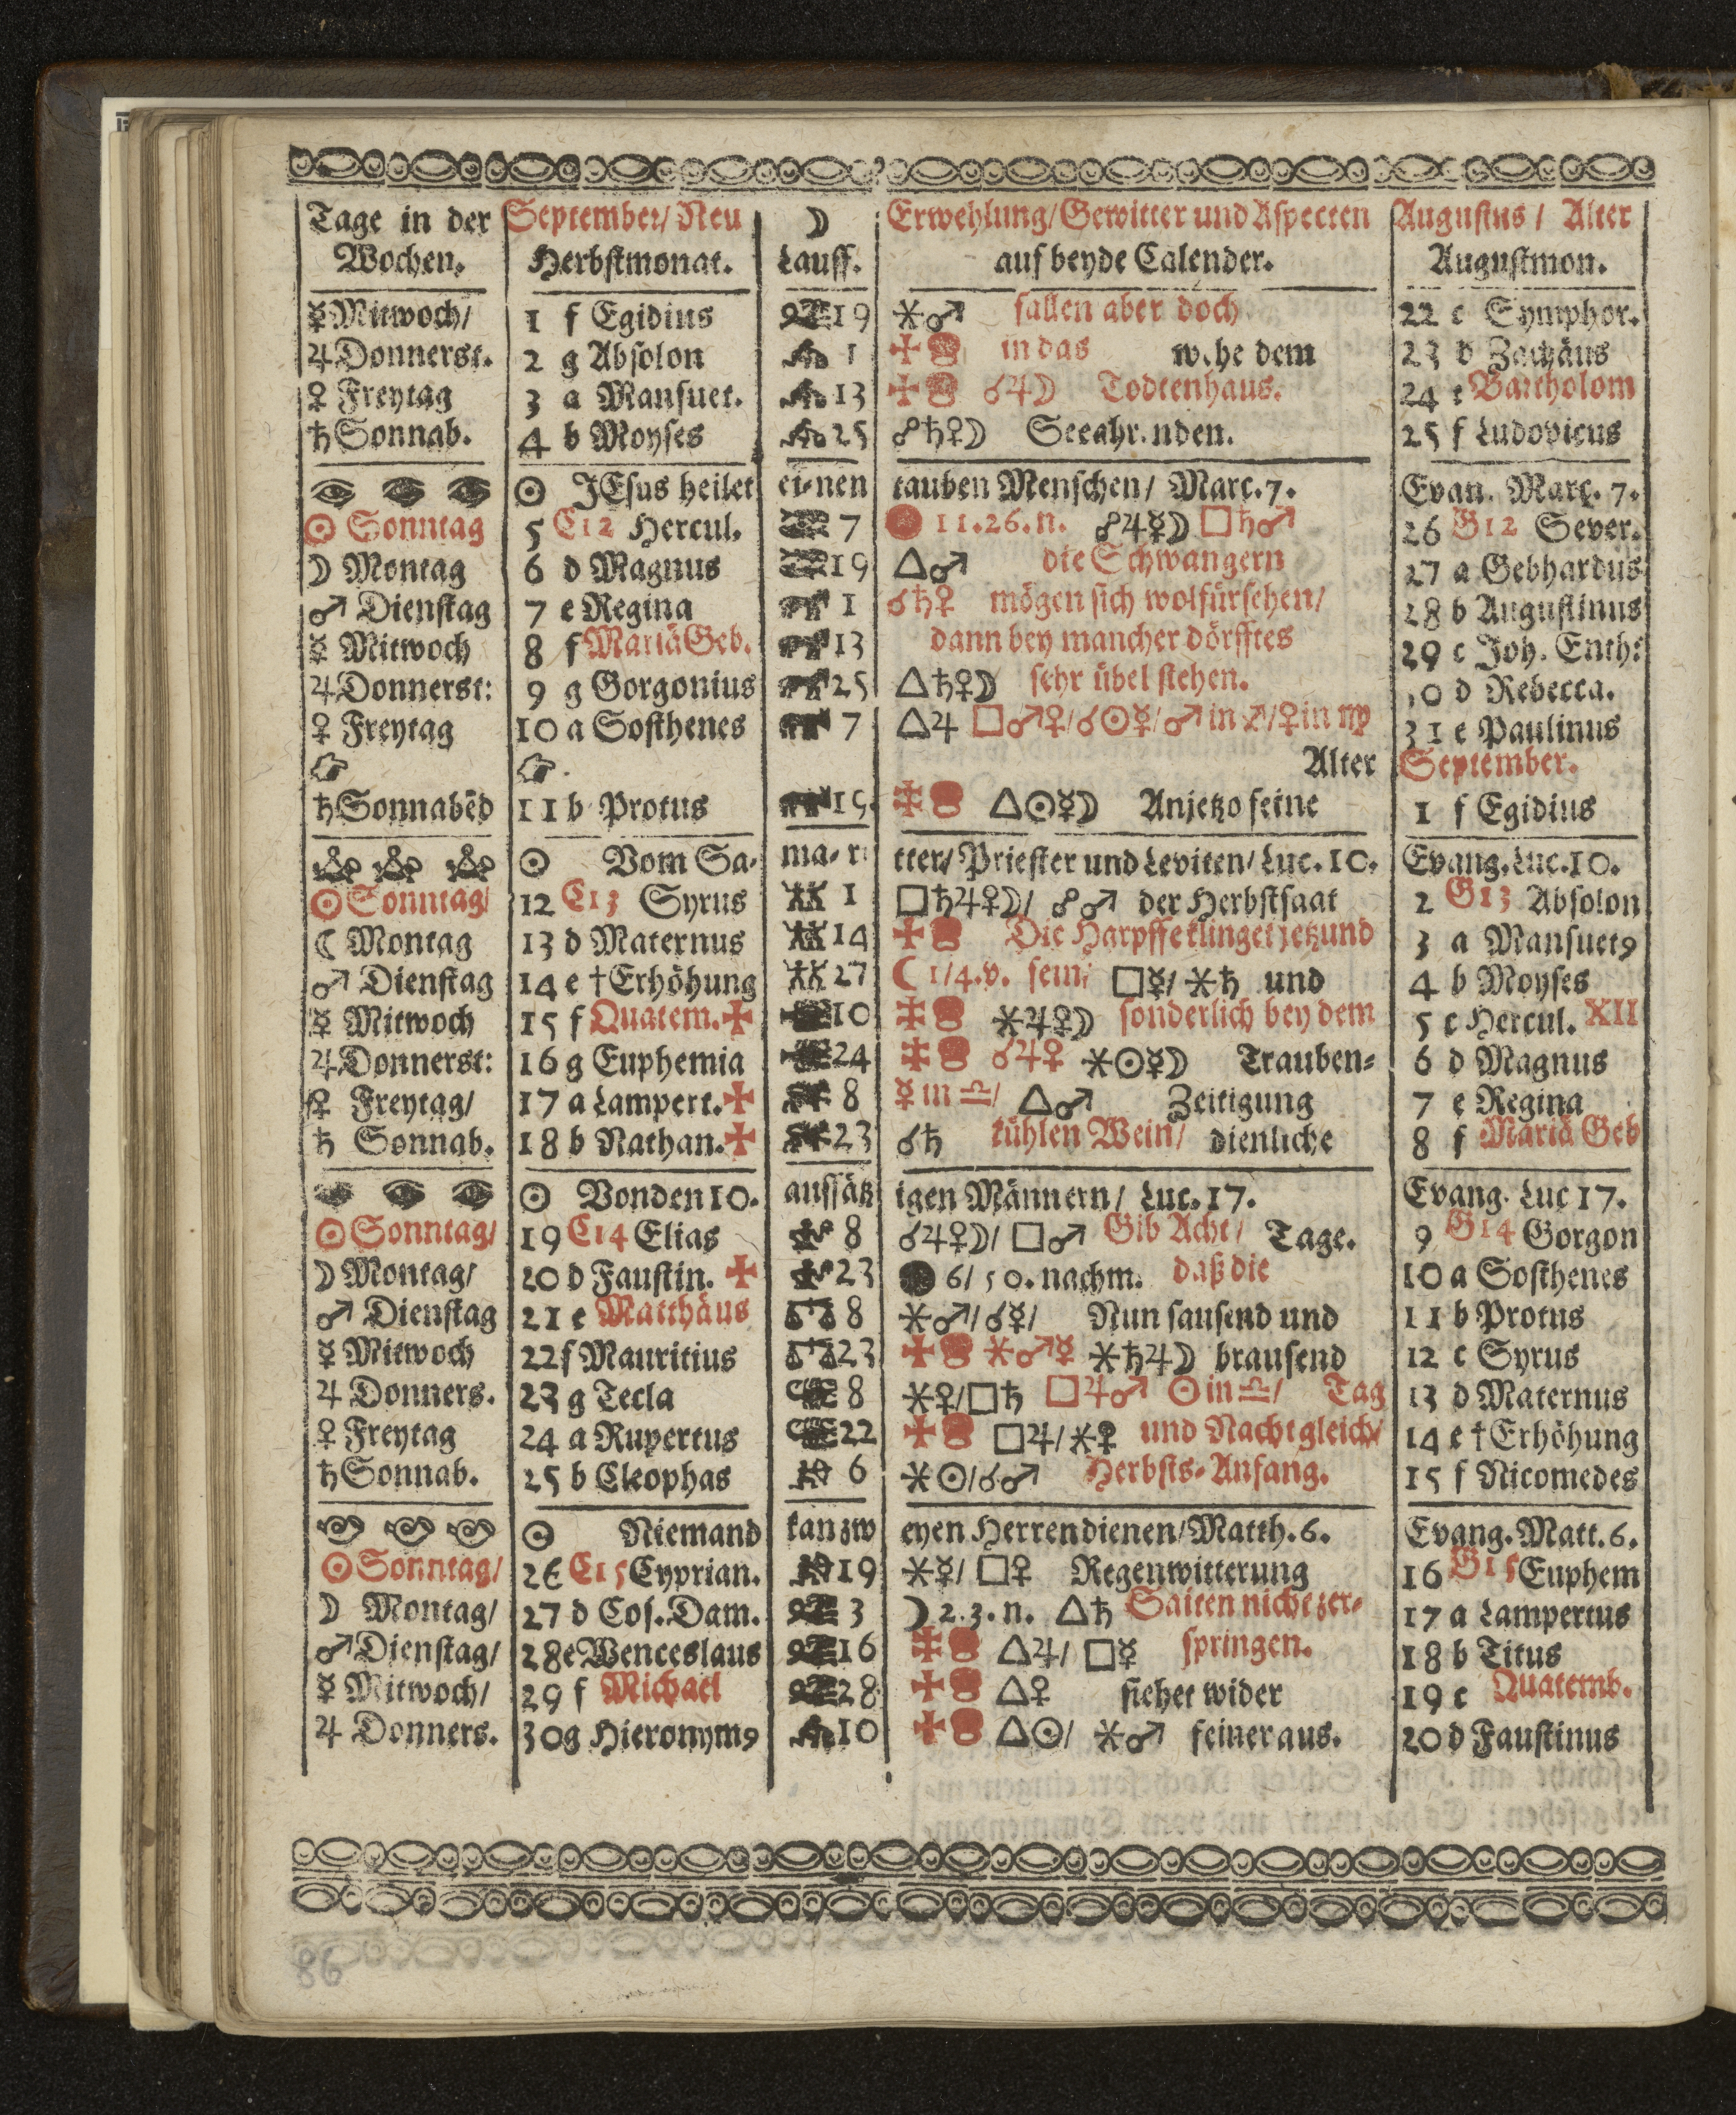 Tage in der September/ Neu ☽ Erwehlung/ Gewitter und Aspecten Augustus / Alter
Wochen. Herbstmonat. Lauff. auf beyde Calender. Augustmon.
☿ Mittwoch/ 1 f Egidius 19 ⚹♂ fallen aber doch 22 c Symphor.
♃ Donnerst. 2 g Absolon 1 in das dem 23 d Zachäus
♀ Freytag 3 a Mansuet. 13 ☌♃☽ Todtenhaus. 24 e Bartholom
♄ Sonnab. 4 b Moyses 25 ☍♄♀☽ 25 f Ludovicus
☉ JEsus heilet ei-nen tauben Menschen/ Marc. 7. Evan. Marc. 7.
☉ Sonntag 5 C12 Hercul. 7 11.26.n. ☍♃☿☽ □♄♂ 26 G12 Sever.
☽ Montag 6 d Magnus 19 △♂ die Schwangern 27 a Gebhardus
♂ Dienstag 7 e Regina 1 ☌♄♀ mögen sich wolfürsehen/ 28 b Augustinus
☿ Mitwoch 8 f Mariä Geb. 13 dann bey mancher dörfftes 29 c Joh. Enth:
♃ Donnerst: 9 g Gorgonius 25 △♄♀☽ sehr übel stehen. d Rebecca.
♀ Freytag 10 a Sosthenes 7 △♃ □♂♀/☌☉☿/♂ in ♐/♀ in ♍ 31 e Paulinus
Alter September.
♄ Sonnabēd 11 b Protus △☉☿☽ Anjetzo seine 1 f Egidius
☉ Vom Sa- ma- ri tter/ Priester und Leviten/ Luc. 10. Evang. Luc. 10.
☉ Sonntag/ 12 C13 Syrus 1 □♄♃♀☽/ ☍♂ der Herbstsaat 2 G13 Absolon
☾ Montag 13 d Maternus 14 Die Harpffe klinget jetzund 3 a Mansuet9
♂ Dienstag 14 e †Erhöhung 27 ☾ 1/4.v. sein/ □☿/ ⚹♄ und 4 b Moyses
☿ Mitwoch 15 f Quatem.✠ 10 ⚹♃♀☽ sonderlich bey dem 5 c Hercul. XII
♃ Donnerst: 16 g Euphemia 24 ☌♃♀ ⚹☉☿☽ Trauben= 6 d Magnus
♀ Freytag/ 17 a Lampert.✠ 8 ☿ in ♎/ △♂ Zeitigung 7 e Regina
♄ Sonnab. 18 b Nathan.✠ 23 ☌♄ kühlen Wein/ dienliche 8 f Mariä Geb
☉ Von den 10. aussätz igen Männern/ Luc. 17. Evang. Luc 17.
☉ Sonntag/ 19 C14 Elias 8 ☌♃♀☽/ □♂ Gib Acht/ Tage. 9 G14 Gorgon
☽ Montag/ 20 d Faustin. ✠ 23 ● 6/50. nachm. daß die 10 a Sosthenes
♂ Dienstag 21 e Matthäus 8 ⚹♂/☌☿/ Nun sausend und 11 b Protus
☿ Mitwoch 22 f Mauritius 23 ⚹♂☿ ⚹♄♃☽ brausend 12 c Syrus
♃ Donners. 23 g Tecla 8 ⚹♀/□♄ □♃♂ ☉ in ♎/ Tag 13 d Maternus
♀ Freytag 24 a Rupertus 22 □♃/⚹☿ und Nacht gleich/ 14 e †Erhöhung
♄ Sonnab. 25 b Cleophas 6 ⚹☉/☌♂ Herbsts-Anfang. 15 f Nicomedes
☉ Niemand kan zw eyen Herren dienen/ Matth. 6. Evang. Matt. 6.
☉ Sonntag/ 26 C15 Cyprian. 19 ⚹☿/ □♀ Regenwitterung 16 G15 Euphem
☽ Montag/ 27 d Cos. Dam. 3 ☽ 2.3.n. △♄ Saiten nicht zer- 17 a Lampertus
♂ Dienstag/ 28 e Wenceslaus 16 △♃/ □☿ springen. 18 b Titus
☿ Mitwoch/ 29 f Michael 28 △♀ siehet wider 19 c Quatemb.
♃ Donners. 30 g Hieronym9 10 △☉/ ⚹♂ feiner aus. 20 d Faustinus
98